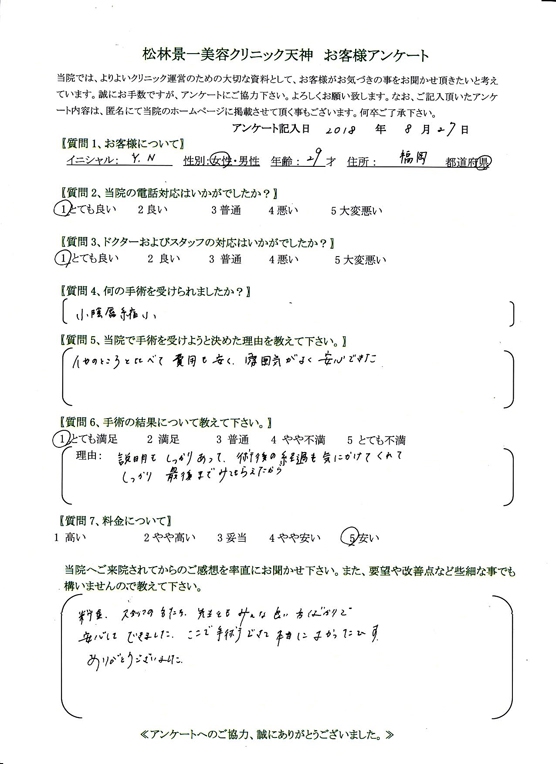 松林景一美容クリニック天神　お客様アンケート
当院では、よりよいクリニック運営のための大切な資料として、お客様がお気づきの事をお聞かせ頂きたいと考え
ています。誠にお手数ですが、アンケートにご協力下さい。よろしくお願い致します。なお、ご記入頂いたアンケ
ート内容は、匿名にて当院のホームページに掲載させて頂く事もございます。何卒ご了承下さい。
アンケート記入日 2018 年 8 月 27 日
〖質問1、お客様について〗
イニシャル： Y.N 性別:女性・男性 年齢：29才 住所： 福岡 都道府県
〖質問2、当院の電話対応はいかがでしたか？〗
1とても良い 2 良い 3 普通 4 悪い 5 大変悪い
〖質問3、ドクターおよびスタッフの対応はいかがでしたか？〗
1とても良い 2 良い 3 普通 4 悪い 5 大変悪い
〖質問4、何の手術を受けられましたか？〗
小陰唇縮小
〖質問5、当院で手術を受けようと決めた理由を教えて下さい。〗
他のところと比べて費用も安く、雰囲気がよく安心できた
〖質問6、手術の結果について教えて下さい。〗
1とても満足 2 満足 3 普通 4 やや不満 5 とても不満
理由: 説明もしっかりあって、術後の経過も気にかけてくれて
しっかり 最後までみてもらえたから
〖質問7、料金について〗
1 高い 2 やや高い 3 妥当 4 やや安い 5 安い
当院へご来院されてからのご感想を率直にお聞かせ下さい。また、要望や改善点など些細な事でも
構いませんので教えて下さい。
料金、スタッフの方たち、先生ともみんな良い方ばかりで
安心してできました。ここで手術できて本当によかったです。
ありがとうございました。
≪アンケートへのご協力、誠にありがとうございました。≫